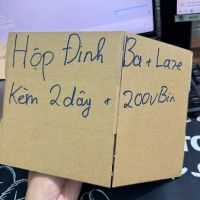 Hộp Đinh Ba + Laze
Kèm 2 dây + 200v Bin